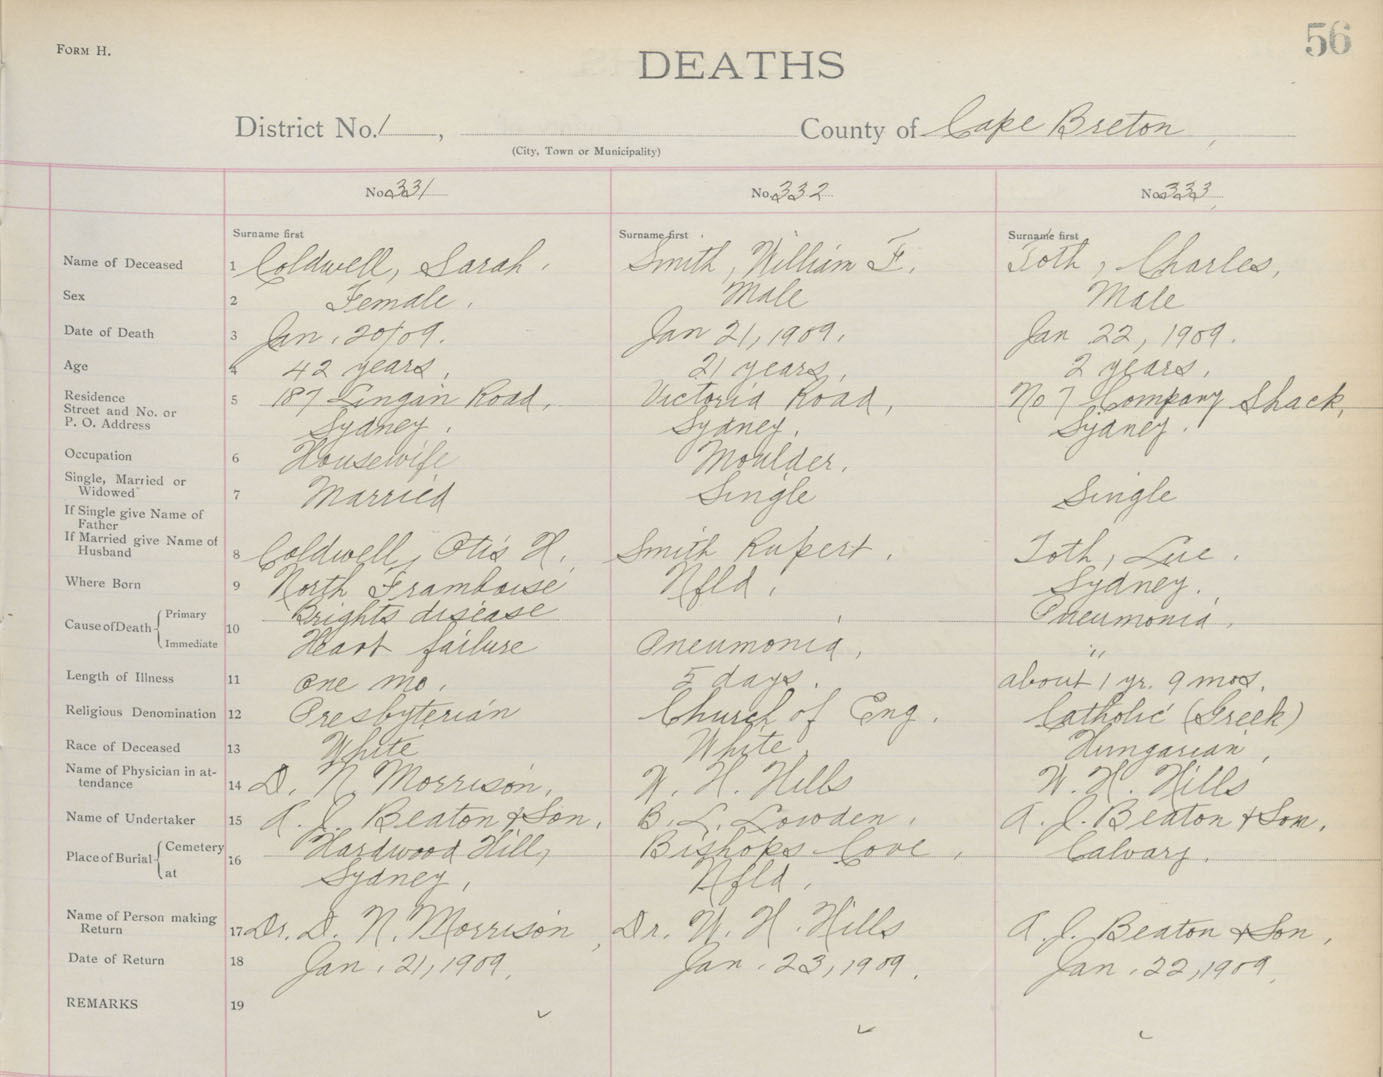 56
FORM H.
DEATHS
District No. 1, County of Cape Breton,
(City, Town or Municipality)
No. 331 No. 332 No. 333
Surname first Surname first Surname first
Name of Deceased 1 Coldwell, Sarah. Smith, William F. Toth, Charles,
Sex 2 Female. Male Male
Date of Death 3 Jan. 20/09. Jan 21, 1909. Jan 22, 1909.
Age 4 42 years. 21 years. 2 years.
Residence
Street and No. or
P. O. Address
5 187 Lingan Road, Victoria Road, No 7 Company Shack,
Sydney. Sydney. Sydney.
Occupation 6 Housewife Moulder.
Single, Married or
Widowed 7 Married Single Single
If Single give Name of
Father
If Married give Name of
Husband 8 Coldwell, Otis H. Smith Rupert. Toth, Lue.
Where Born 9 North Framboise Nfld. Sydney.
Cause of Death 10
Primary Brights disease Pneumonia.
Immediate Heart failure Pneumonia. "
Length of Illness 11 One mo. 5 days. about 1 yr. 9 mos.
Religious Denomination 12 Presbyterian Church of Eng. Catholic (Greek)
Race of Deceased 13 White White Hungarian,
Name of Physician in at-
tendance 14 D. N. Morrison. W. H. Hills W. H. Hills
Name of Undertaker 15 A. J. Beaton & Son. B. L. Lowden. A. J. Beaton & Son.
Place of Burial 16
Cemetery Hardwood Hill, Bishops Cove, Calvary.
at Sydney, Nfld.
Name of Person making
Return 17 Dr. D. N. Morrison, Dr. W. H. Hills A. J. Beaton & Son,
Date of Return 18 Jan. 21, 1909. Jan. 23, 1909. Jan. 22, 1909.
REMARKS 19